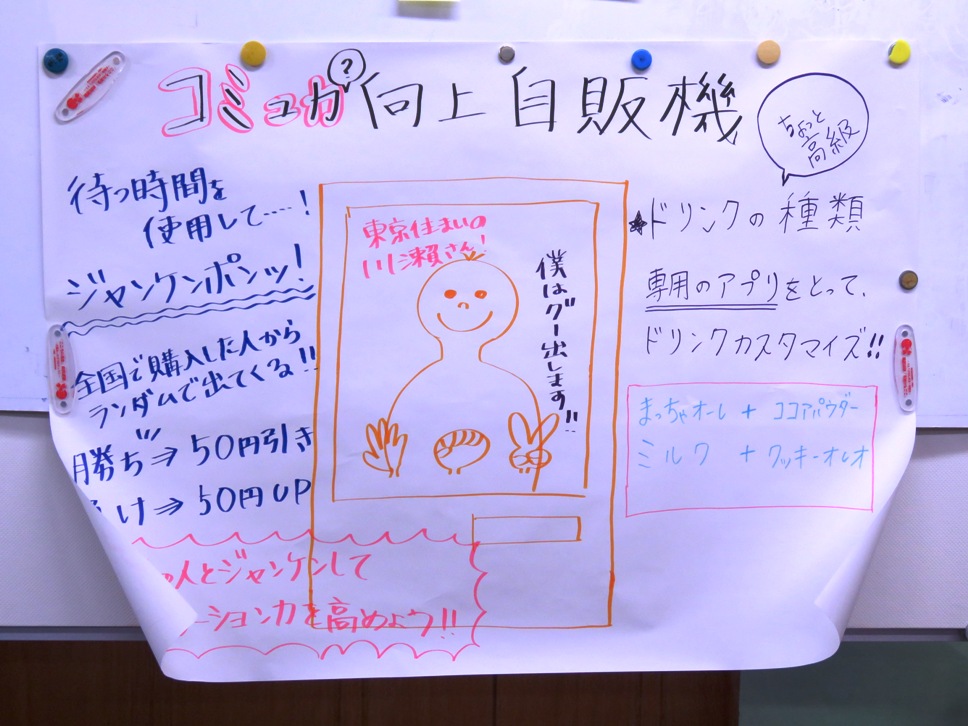 コミュカ?向上自販機
ちょっと
高級
待つ時間を
使用して……!
ジャンケンポンッ!
全国で購入した人から
ランダムで出てくる!!
勝ち⇒50円引き
け⇒50円UP
人とジャンケンして
ーション力を高めよう!!
東京住まいの
川瀬さん!
僕はグー出します!!
★ドリンクの種類
専用のアプリをとって、
ドリンクカスタマイズ!!
まっちゃオーレ + ココアパウダー
ミルク + クッキーオレオ